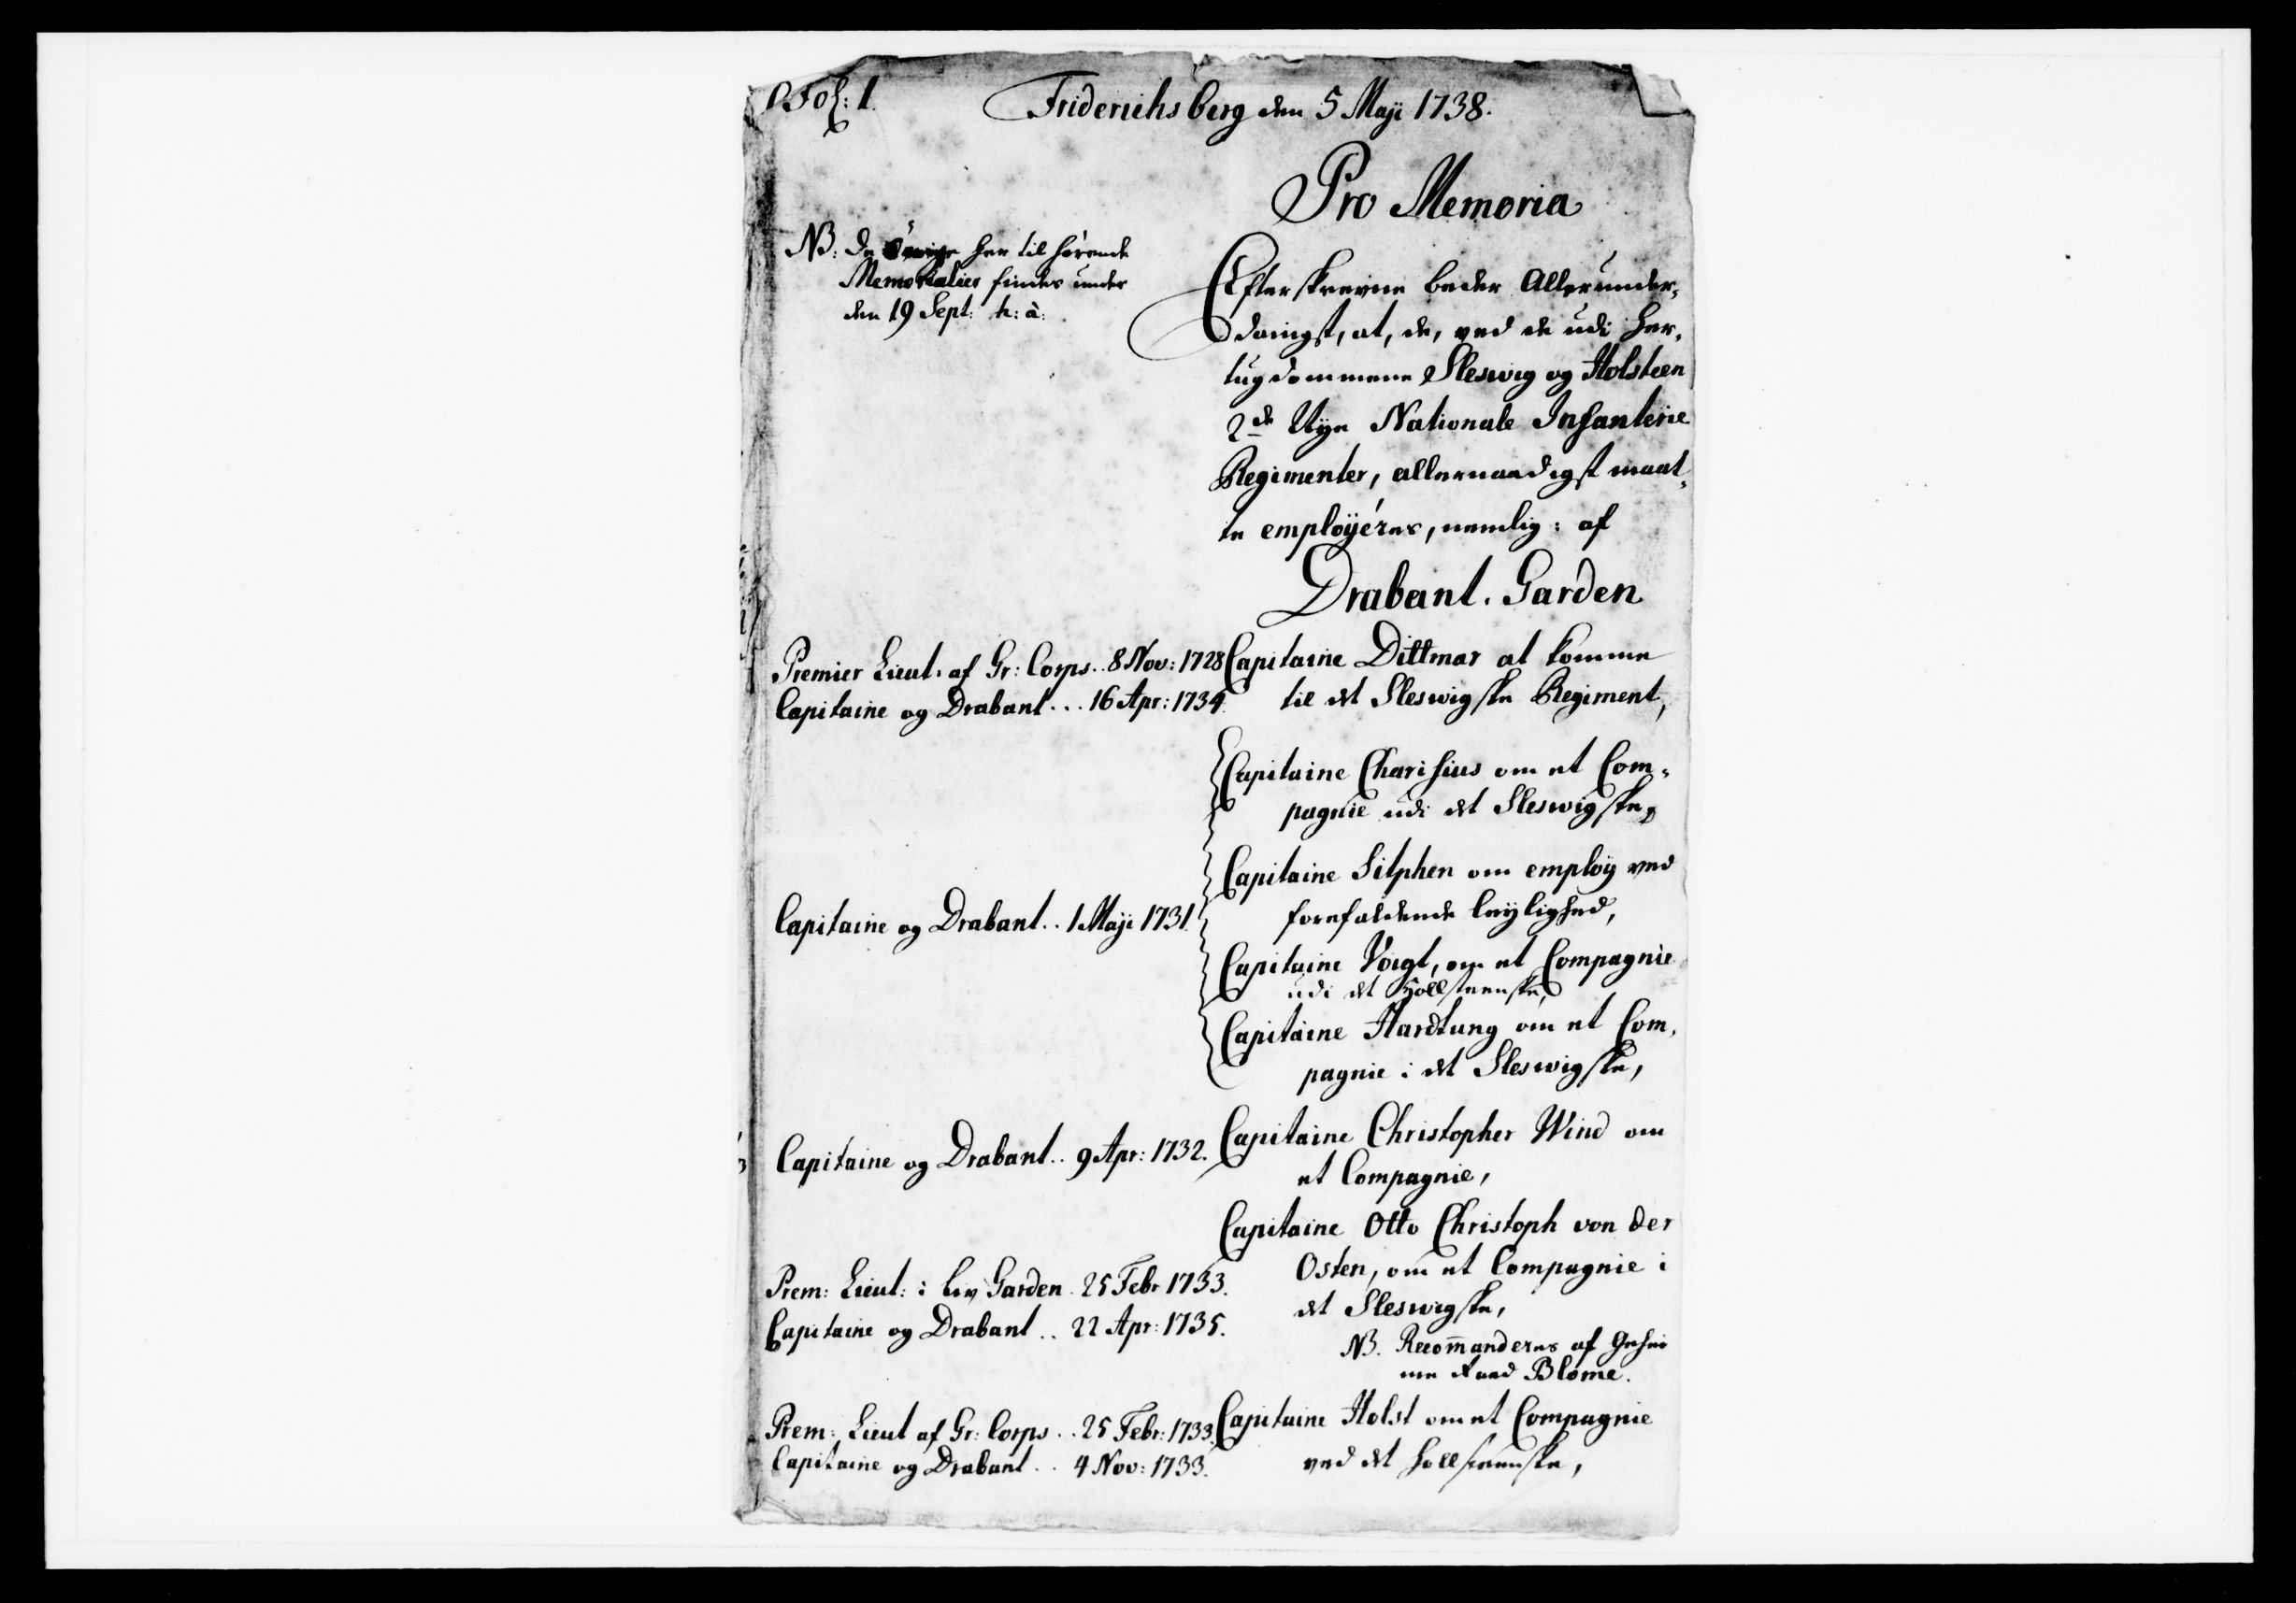 Fol: 1.
Friderichsberg den 5 Maji 1738.
Pro Memoria
NB: De öwrige her til hörende
Memorialier findes under
den 19 Sept: h: à:
Efterskrevne beder Allerunder-
danigst, at, de, ved de udi Her-
tugdommene Sleswig og Holsteen
2de Nye Nationale Infanterie
Regimenter, allernaadigst maat-
te employéres, nemlig: af
Drabant-Garden
Premier Lieut: af Gr: Corps .. 8 Nov: 1728
Capitaine og Drabant ... 16 Apr: 1734.
Capitaine Dittmar at komme
til det Sleswigske Regiment,
Capitaine Charisius om et Com-
pagnie udi det Sleswigske,
Capitaine og Drabant .. 1 Maji 1731.
Capitaine Silphen om employ ved
forefaldende leylighed,
Capitaine Voigt, om et Compagnie
udi det Hollsteenske,
Capitaine Hardtung om et Com-
pagnie i det Sleswigske,
Capitaine og Drabant .. 9 Apr: 1732.
Capitaine Christopher Wind om
et Compagnie,
Prem: Lieut: i Liv Garden . 25 Febr 1733.
Capitaine og Drabant .. 22 Apr: 1735.
Capitaine Otto Christoph von der
Osten, om et Compagnie i
det Sleswigske,
NB. Recommanderes af Gehei
me Raad Blome.
Prem: Lieut af Gr: Corps .. 25 Febr: 1733.
Capitaine og Drabant .. 4 Nov: 1733.
Capitaine Holst om et Compagnie
ved det Hollsteenske,